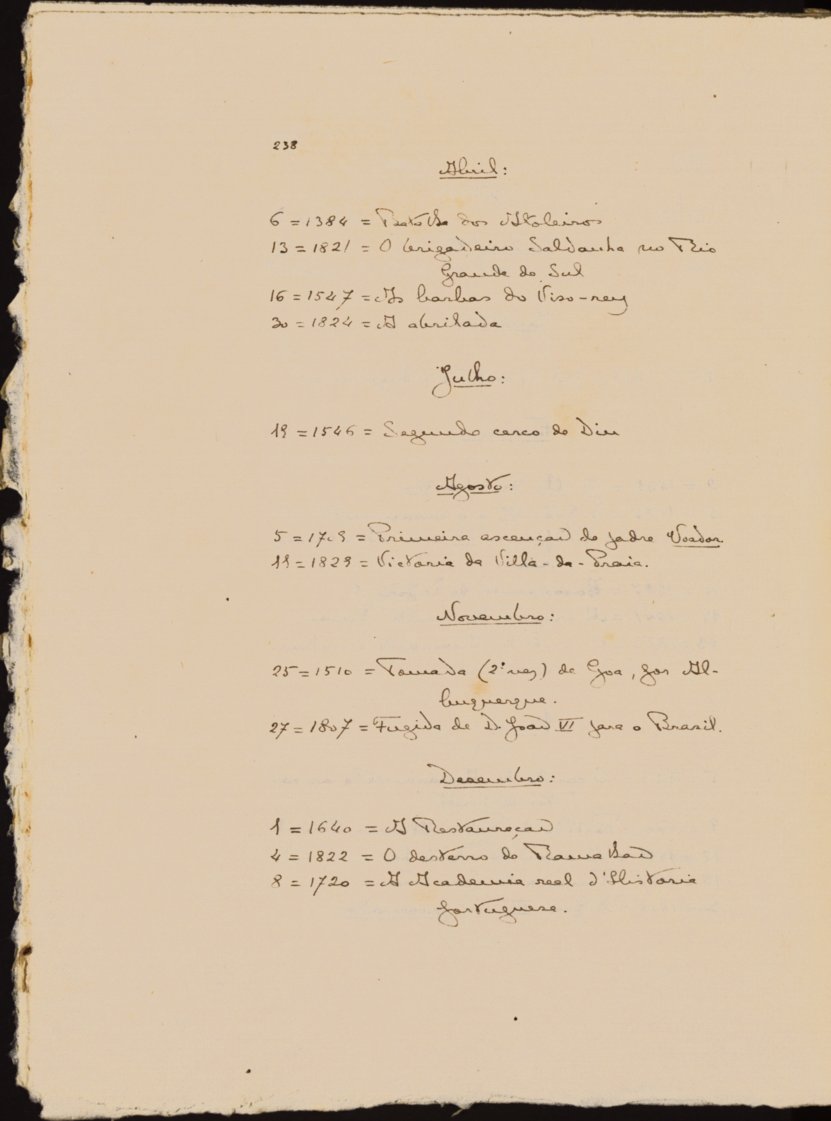 238
Abril:
6 = 1384 = Batalha dos Atoleiros
13 = 1821 = O brigadeiro Saldanha no Rio
Grande do Sul
16 = 1547 = As barbas do Viso-rey
30 = 1824 = A abrilada
Julho:
19 = 1546 = Segundo cerco de Diu
Agosto:
5 = 1709 = Primeira ascenção do padre Voador
11 = 1829 = Victoria da Villa-da-Praia.
Novembro:
25 = 1510 = Tomada (2ª vez) de Goa, por Al-
buquerque.
27 = 1807 = Fugida de D. João VI para o Brazil.
Dezembro:
1 = 1640 = A Restauração
4 = 1822 = O desterro do Ramalhão
8 = 1720 = A Academia real d'Historia
portugueza.